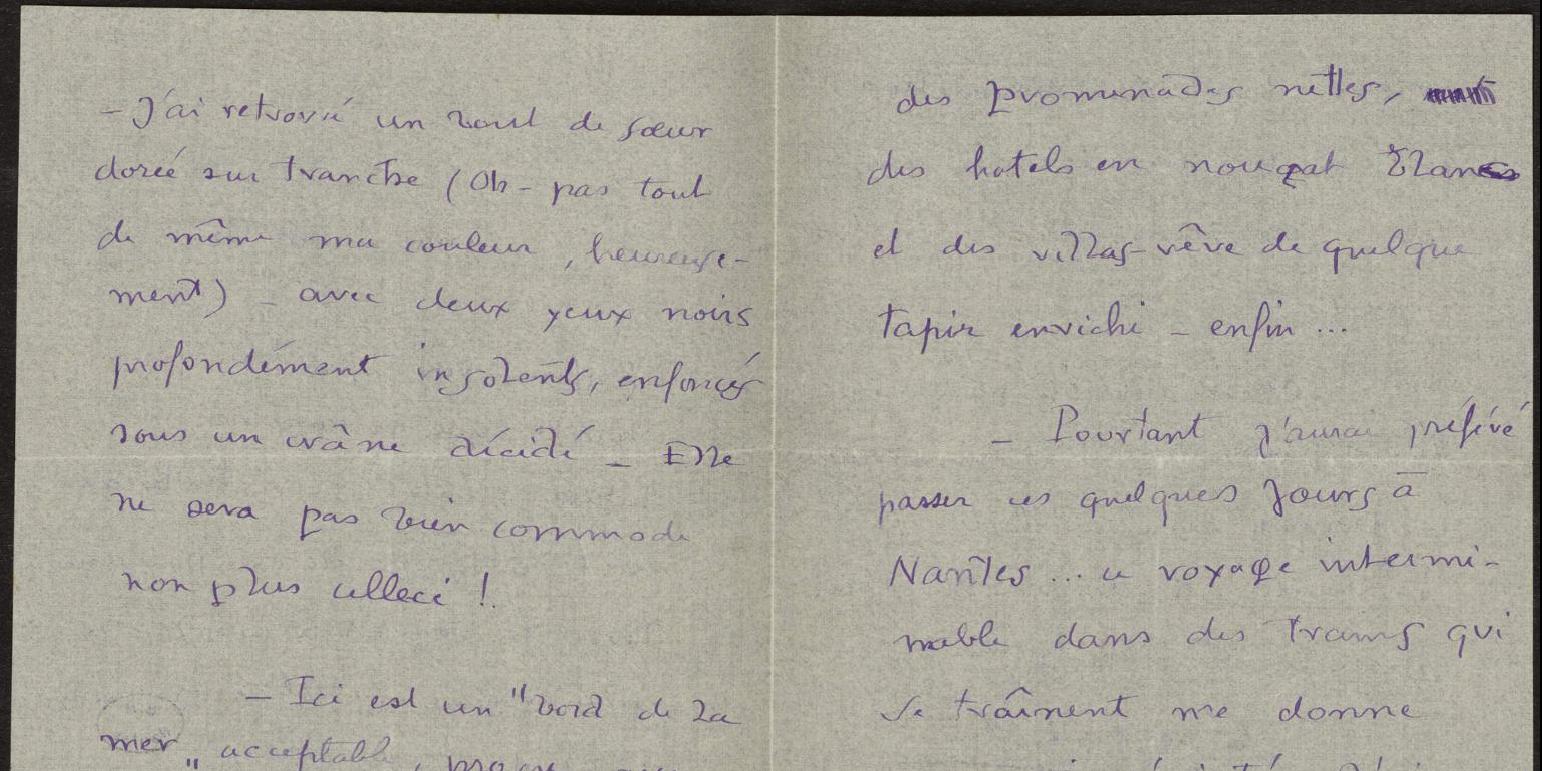 - J'ai retrouvé un bout de sœur
dorée sur tranche (Oh - pas tout
de même ma couleur, heureuse-
ment) - avec deux yeux noirs
profondément insolents, enfoncés
sous un crâne décidé - Elle
ne sera pas bien commode
non plus celleci !
- Ici est un "bord de la
mer" acceptable,
des promenades nettes,
des hotels en nougat blanc
et des villas-rêve de quelque
tapir enrichi - enfin ...
- Pourtant j'aurai préféré
passer ces quelques jours à
Nantes ... ce voyage intermi-
nable dans des trams qui
se traînent me donne